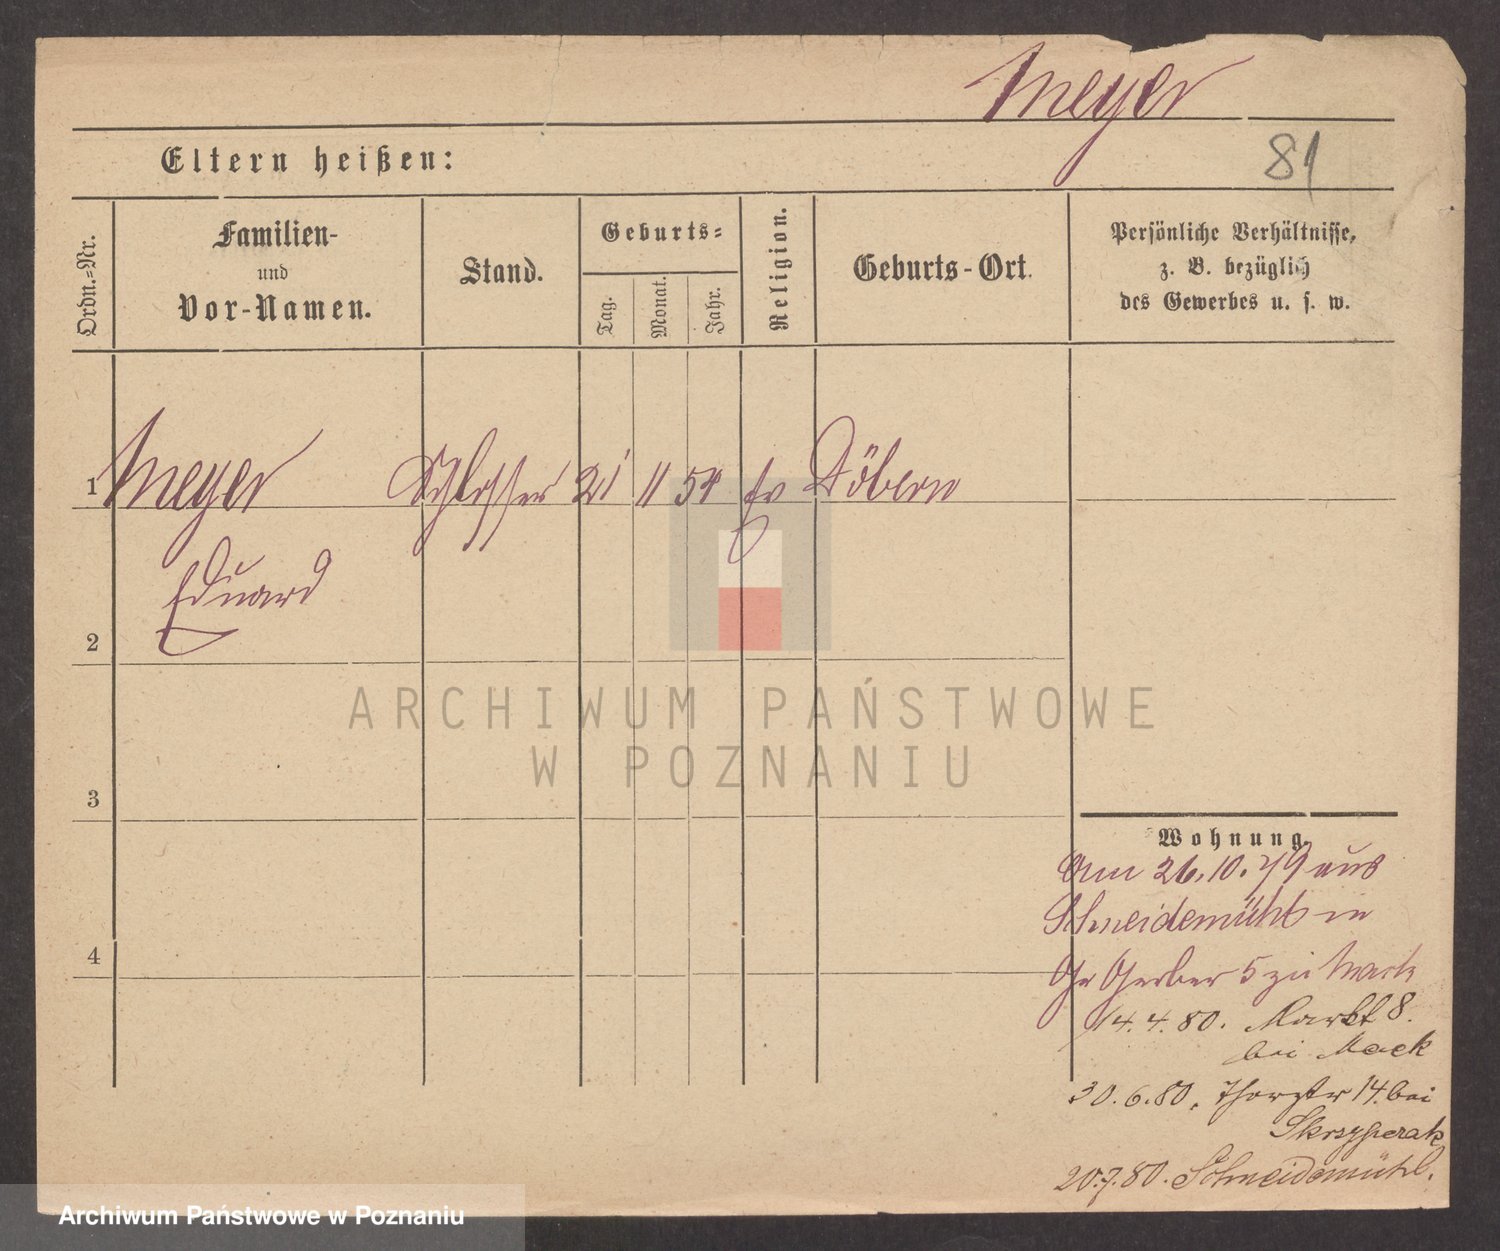 Meyer
81
Eltern heißen:
Ordn.=Nr.
Familien-
und
Vor-Namen.
Stand.
Geburts=
Tag.
Monat.
Jahr.
Religion.
Geburts-Ort.
Persönliche Verhältnisse,
z. B. bezüglich
des Gewerbes u. s. w.
1 Meyer Schlosser 21 11 54 Ev Döbern
Eduard
2
3
4
Wohnung.
Am 26.10.79 aus
Schneidemühl in
Gr Gerber 5 zu
14.4.80. Markt 8.
bei Mack
30.6.80. Thorstr 14. bei
Skrzypczak
20.7.80. Schneidemühl.
ARCHIWUM PAŃSTWOWE
W POZNANIU
Archiwum Państwowe w Poznaniu